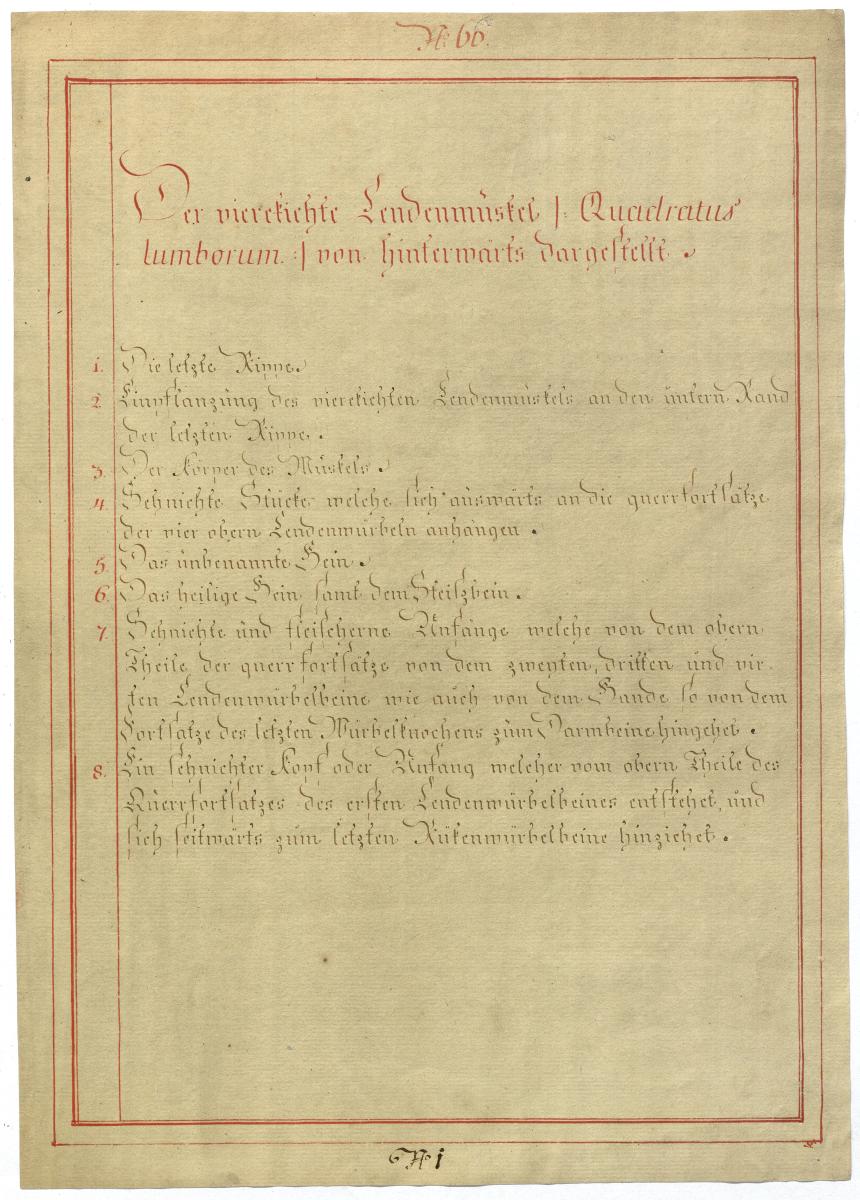 N: 66.
Der vierekichte Lendenmuskel |: Quadratus
lumborum. :| von hinterwärts dargestellt.
1. Die letzte Rippe.
2. Einpflanzung des vierekichten Lendenmuskels an den untern Rand
der letzten Rippe.
3. Der Körper des Muskels.
4. Sehnichte Stücke welche sich auswärts an die querrfortsätze
der vier obern Lendenwürbeln anhängen.
5. Das unbenannte Bein.
6. Das heilige Bein samt dem Steiszbein.
7. Sehnichte und fleischerne Anfänge welche von dem obern
Theile der querrfortsätze von dem zweyten, dritten und vir-
ten Lendenwürbelbeine wie auch von dem Bande so von dem
Fortsatze des letzten Würbelknochens zum Darmbeine hingehet.
8. Ein sehnichter Kopf oder Anfang welcher vom obern Theile des
Querrfortsatzes des ersten Lendenwürbelbeines entstehet, und
sich seitwärts zum letzten Rükenwürbelbeine hinziehet.
N i